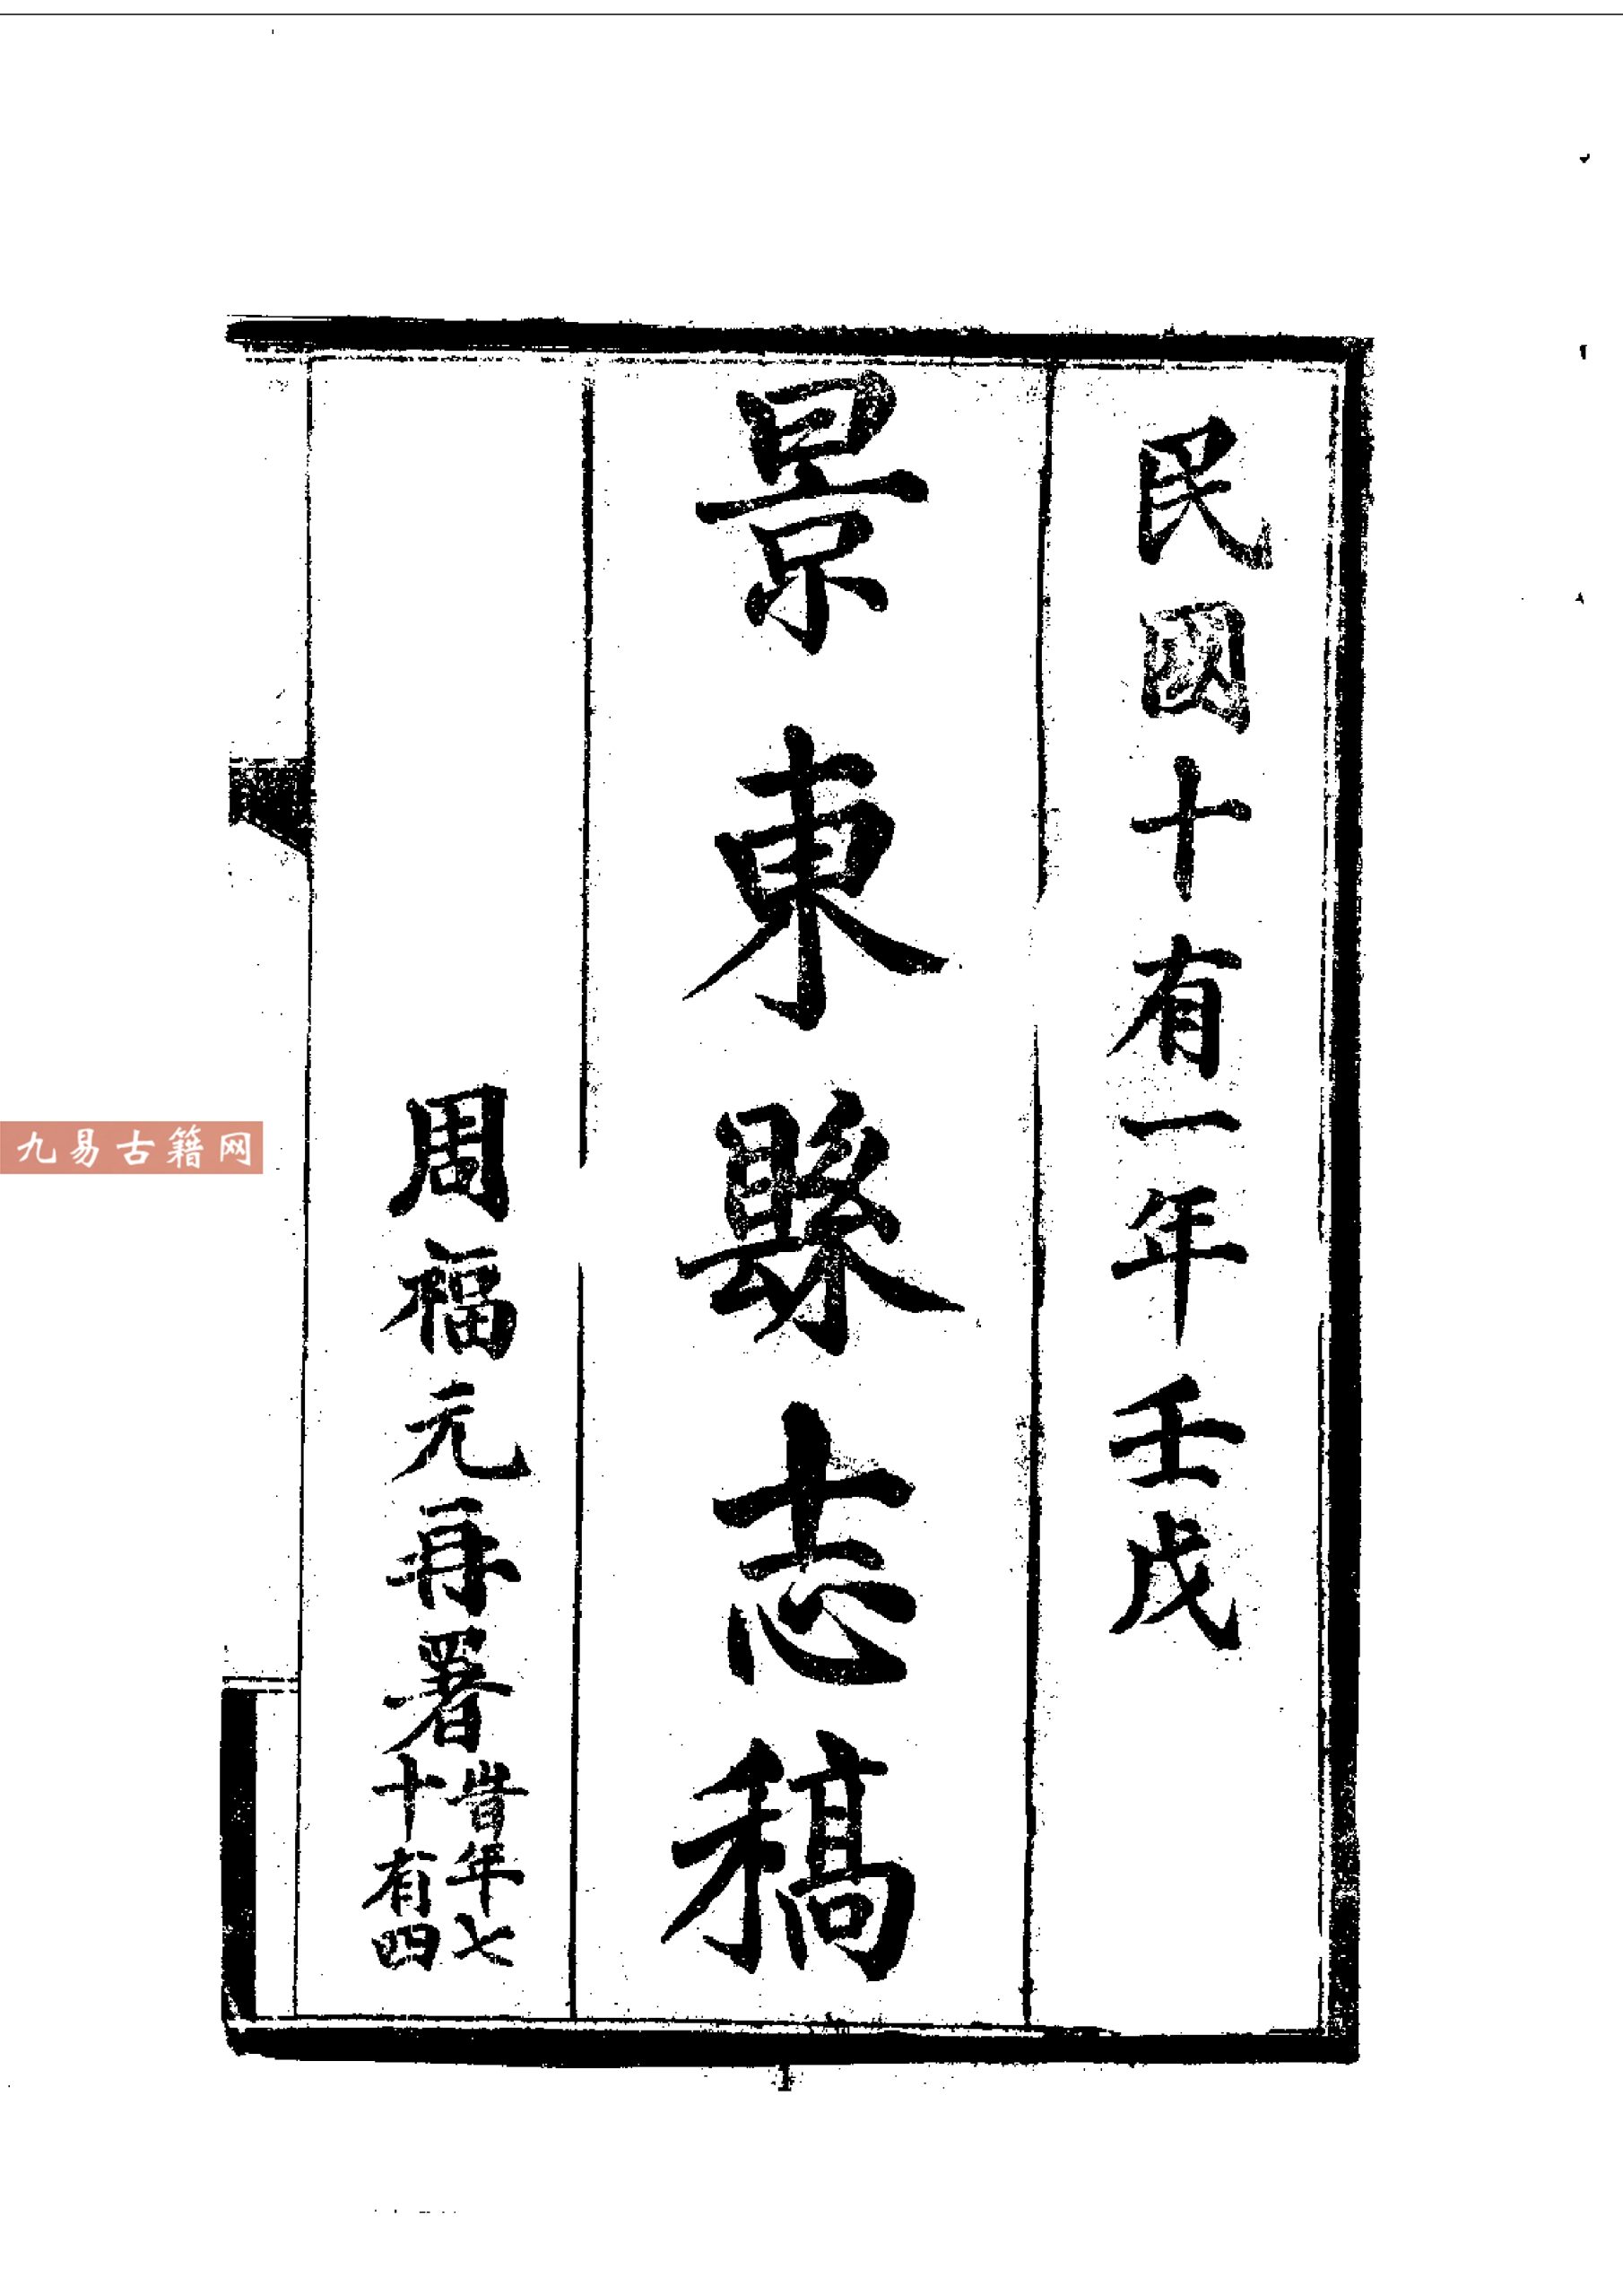 民國十有一年壬戌
景東縣志稿
周福元再署
旹年七
十有四
九易古籍网